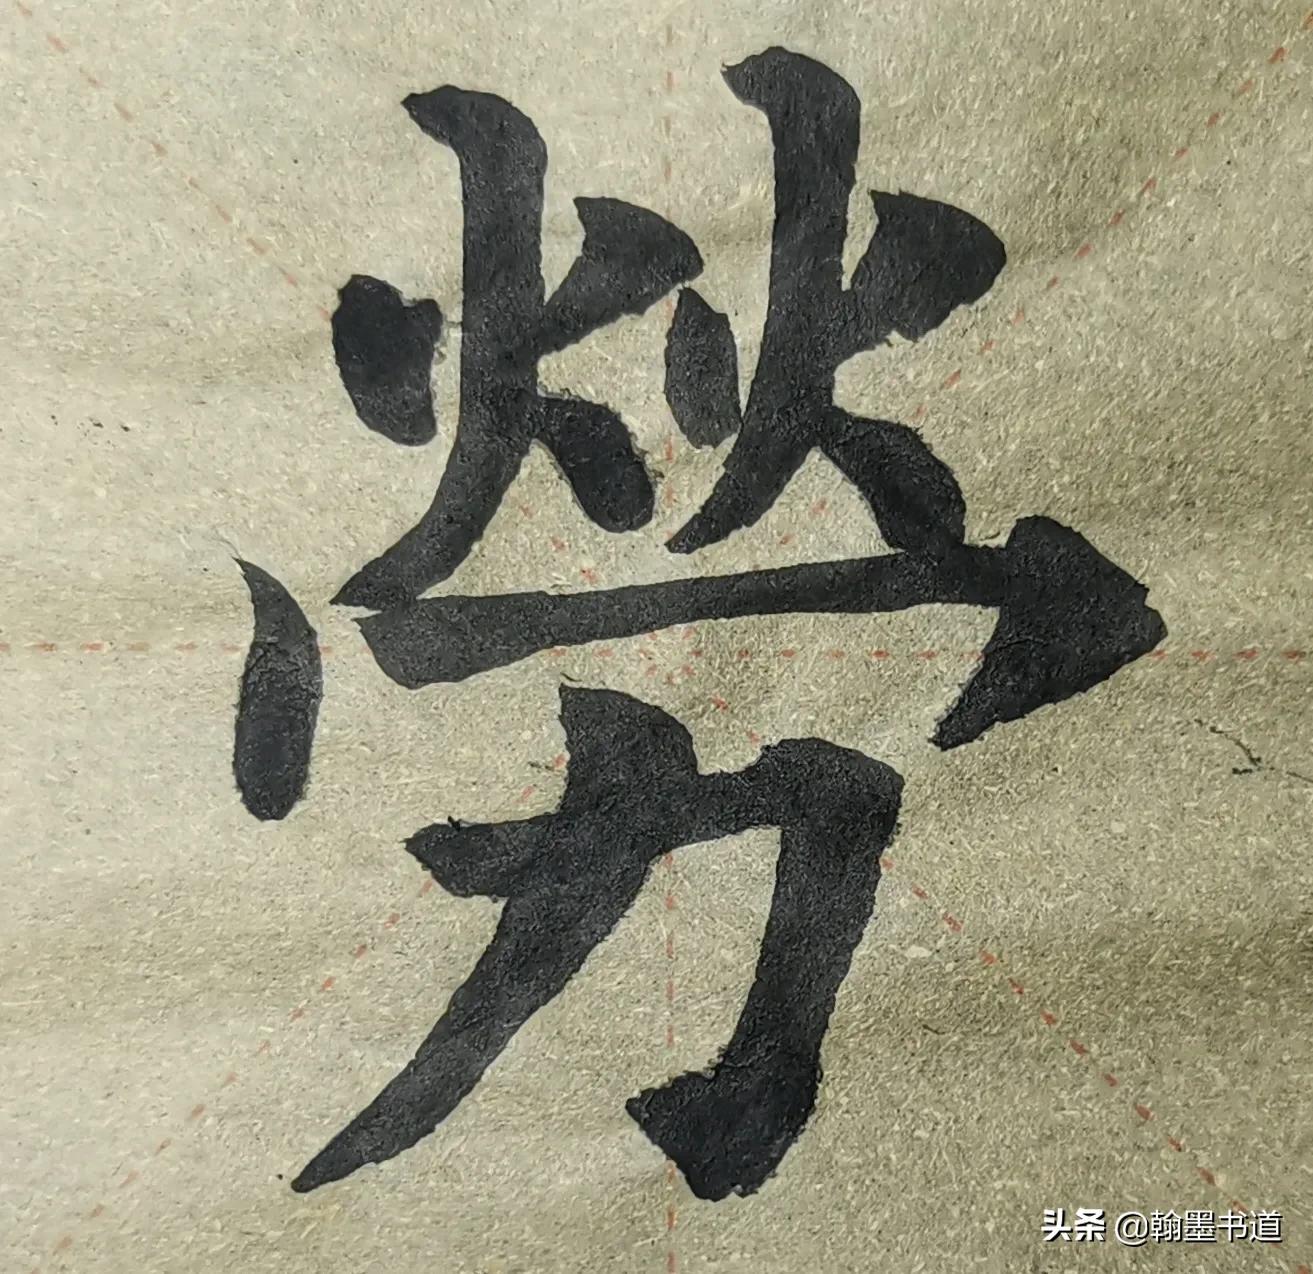 勞
头条 @翰墨书道